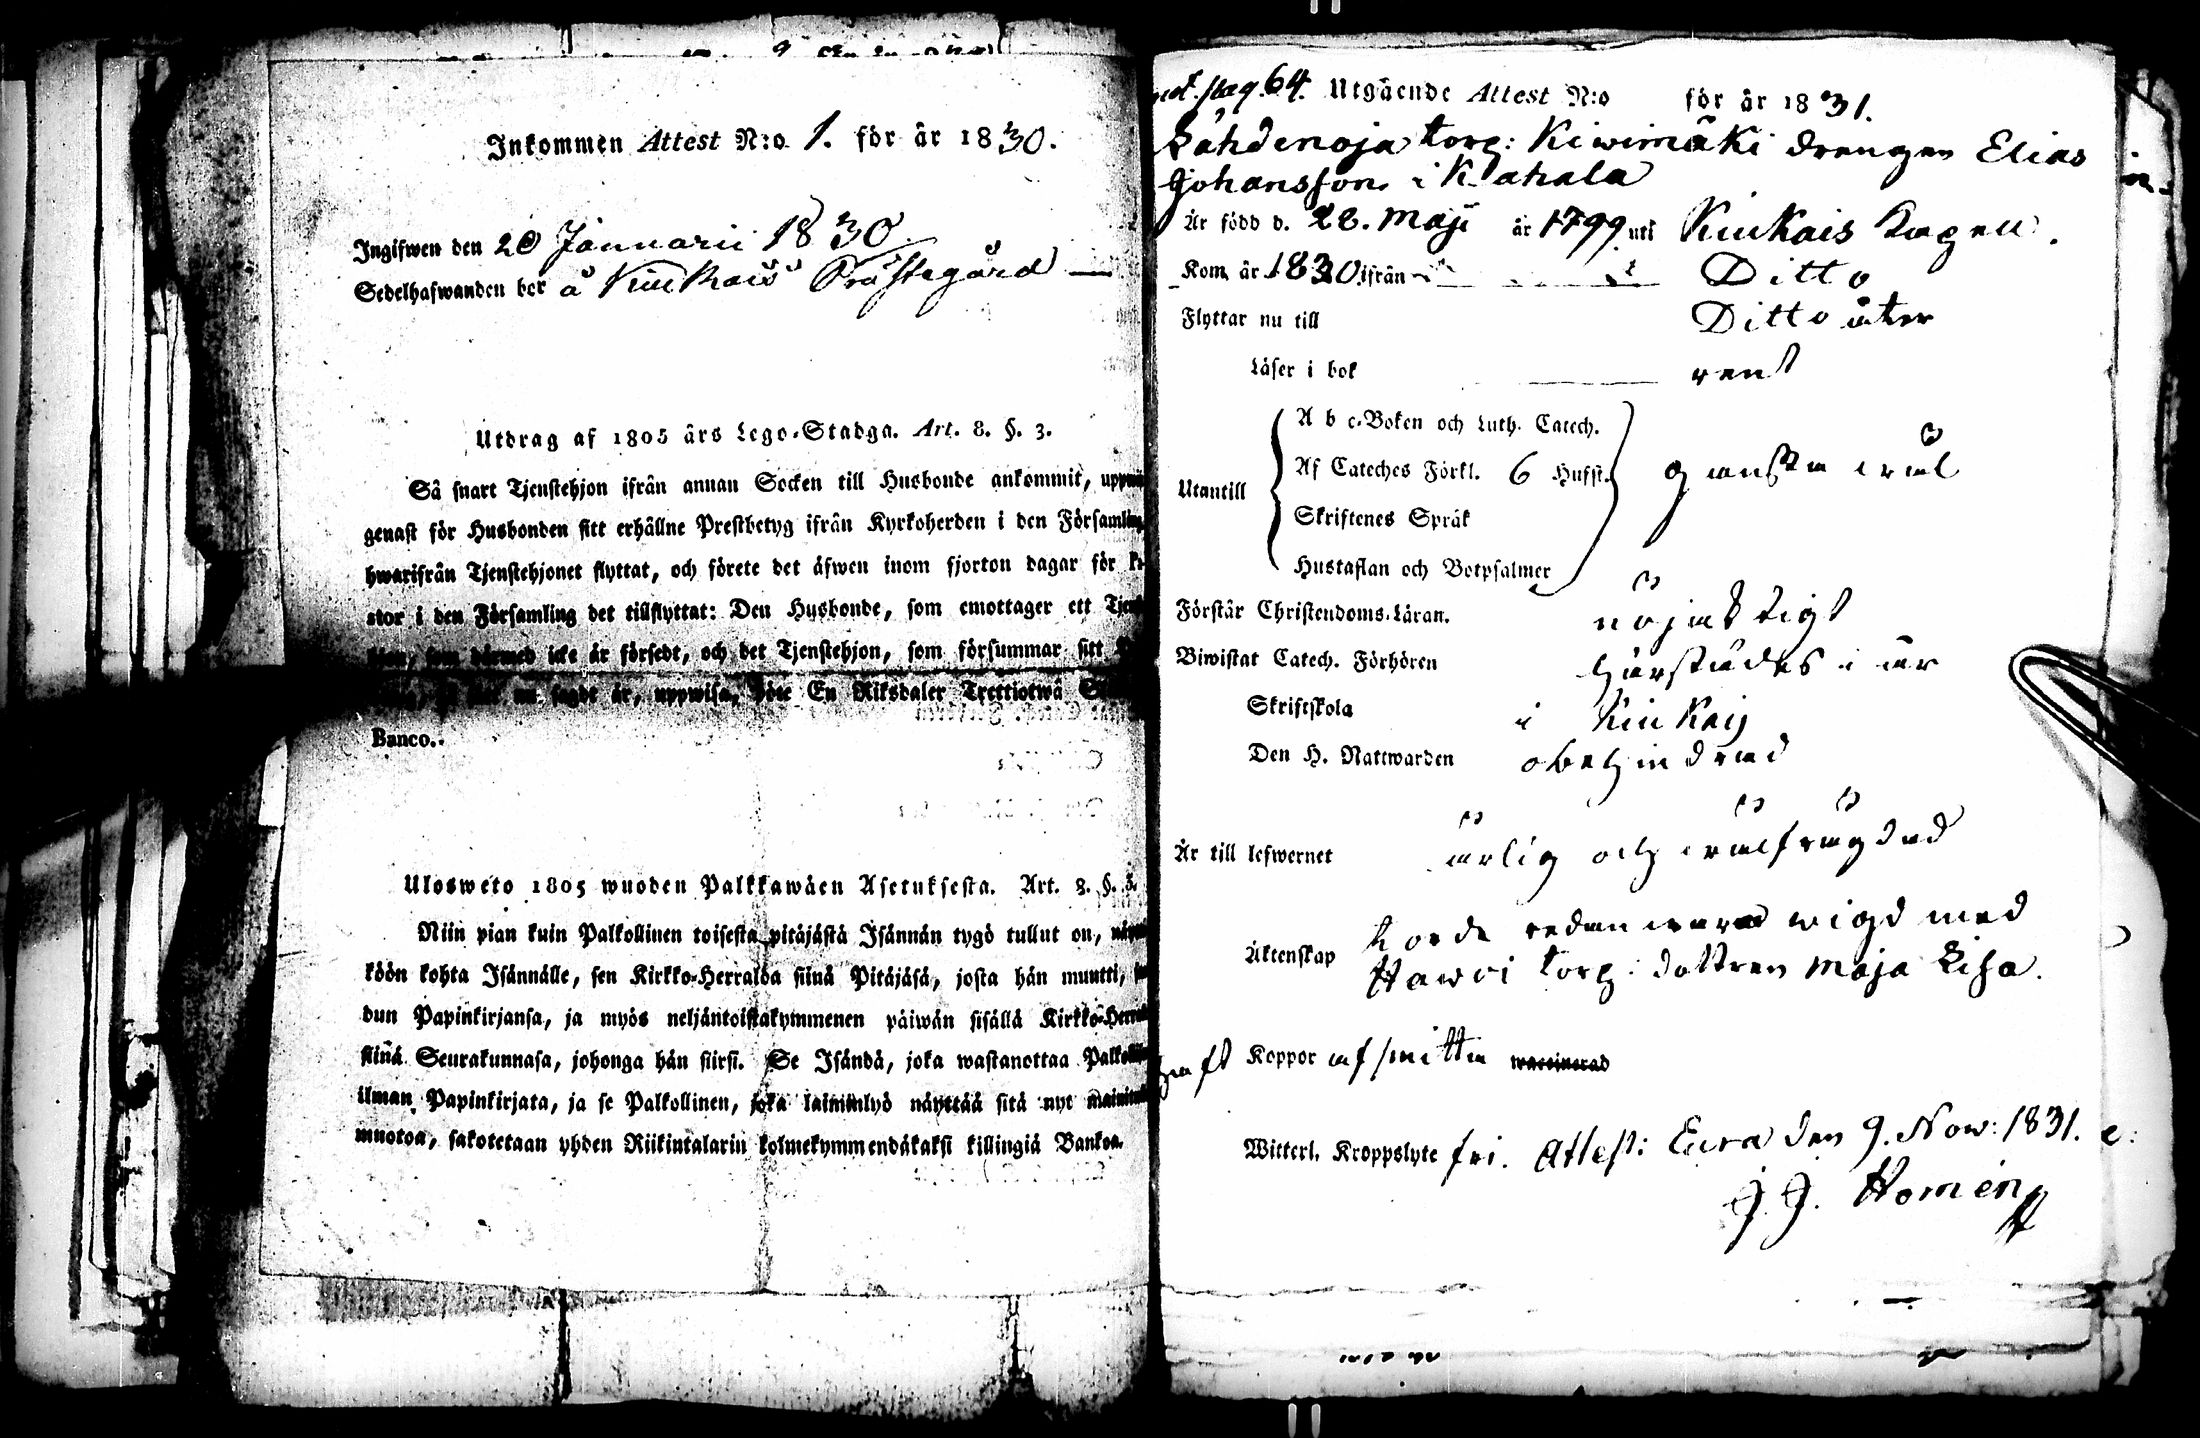 Inkommen Attest N:o 1. för år 1830.
Ingifwen den 20 Januarii 1830
Sedelhafwanden bor å Kiukais Prästegård
Utdrag af 1805 års Lego-Stadga. Art. 8. §. 3.
Så snart Tjenstehjon ifrån annan Socken till Husbonde ankommit,
genast för Husbonden sitt erhållne Prestbetyg ifrån Kyrkoherden i den
hwarifrån Tjenstehjonet flyttat, och förete det äfwen inom fjorton dagar för
i den Församling det tillflyttat: Den Husbonde, som emottager ett
icke är försedt, och det Tjenstehjon, som försummar sitt
sagdt är, uppwisa, böte En Riksdaler Trettiotwå
Banco.
Ulosweto 1805 wuoden Palkkawäen Asetuksesta. Art. 8. §. 3.
Niin pian kuin Palkollinen toisesta pitäjästä Isännän tygö tullut on,
köön kohta Isännälle, sen Kirkko-Herralda siinä Pitäjäsä, josta hän muutti,
dun Papinkirjansa, ja myös neljäntoistakymmenen päiwän sisällä
siinä Seurakunnasa, johonga hän siirsi. Se Isändä, joka wastanottaa
ilman Papinkirjata, ja se Palkollinen, joka laiminlyö näyttää sitä nyt
muotoa, sakotetaan yhden Riikintalarin kolmekymmendäkaksi killingiä Bankoa.
pag. 64. Utgående Attest N:o för år 1831.
Lähdenoja torp: Kiwimäki drengen Elias
Johansson i Kahala
Är född d. 28. Maji år 1799 uti Kiukais Capell.
Kom år 1830 ifrån Ditto
Flyttar nu till Ditto åter
Läser i bok rent
A b c-Boken och Luth. Catech.
Af Cateches Förkl. 6 Hufst. ganska wäl
Utantill
Skriftenes Språk
Hustaflan och Botpsalmer
Förstår Christendoms-Läran. nöjaktigt
Biwistat Catech. Förhören härstädes i år
Skriftskola i Kiukais
Den H. Nattwarden obehindrad
Är till lefwernet ärlig och wälfrägdad
Äktenskap torde redan wara wigd med
Hawri torp: dottren Maja Lisa.
haft Koppor af smitta waccinerad
Witterl. Kroppslyte fri. Attest: Eura den 9. Now: 1831.
J. J. Homén